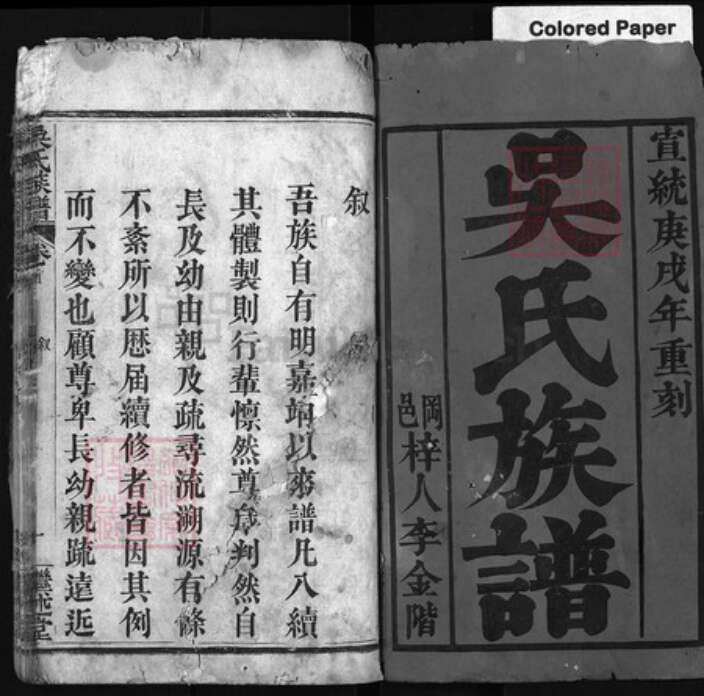 Colored Paper
宣統庚戌年重刻
吳氏族譜
岡邑梓人李金階
叙
吾族自有明嘉靖以來譜凡八續
其體製則行輩懔然尊卑判然自
長及幼由親及疏尋流溯源有條
不紊所以歷届續修者皆因其例
而不變也顧尊卑長幼親疏遠近
吳氏族譜
卷首
叙
一